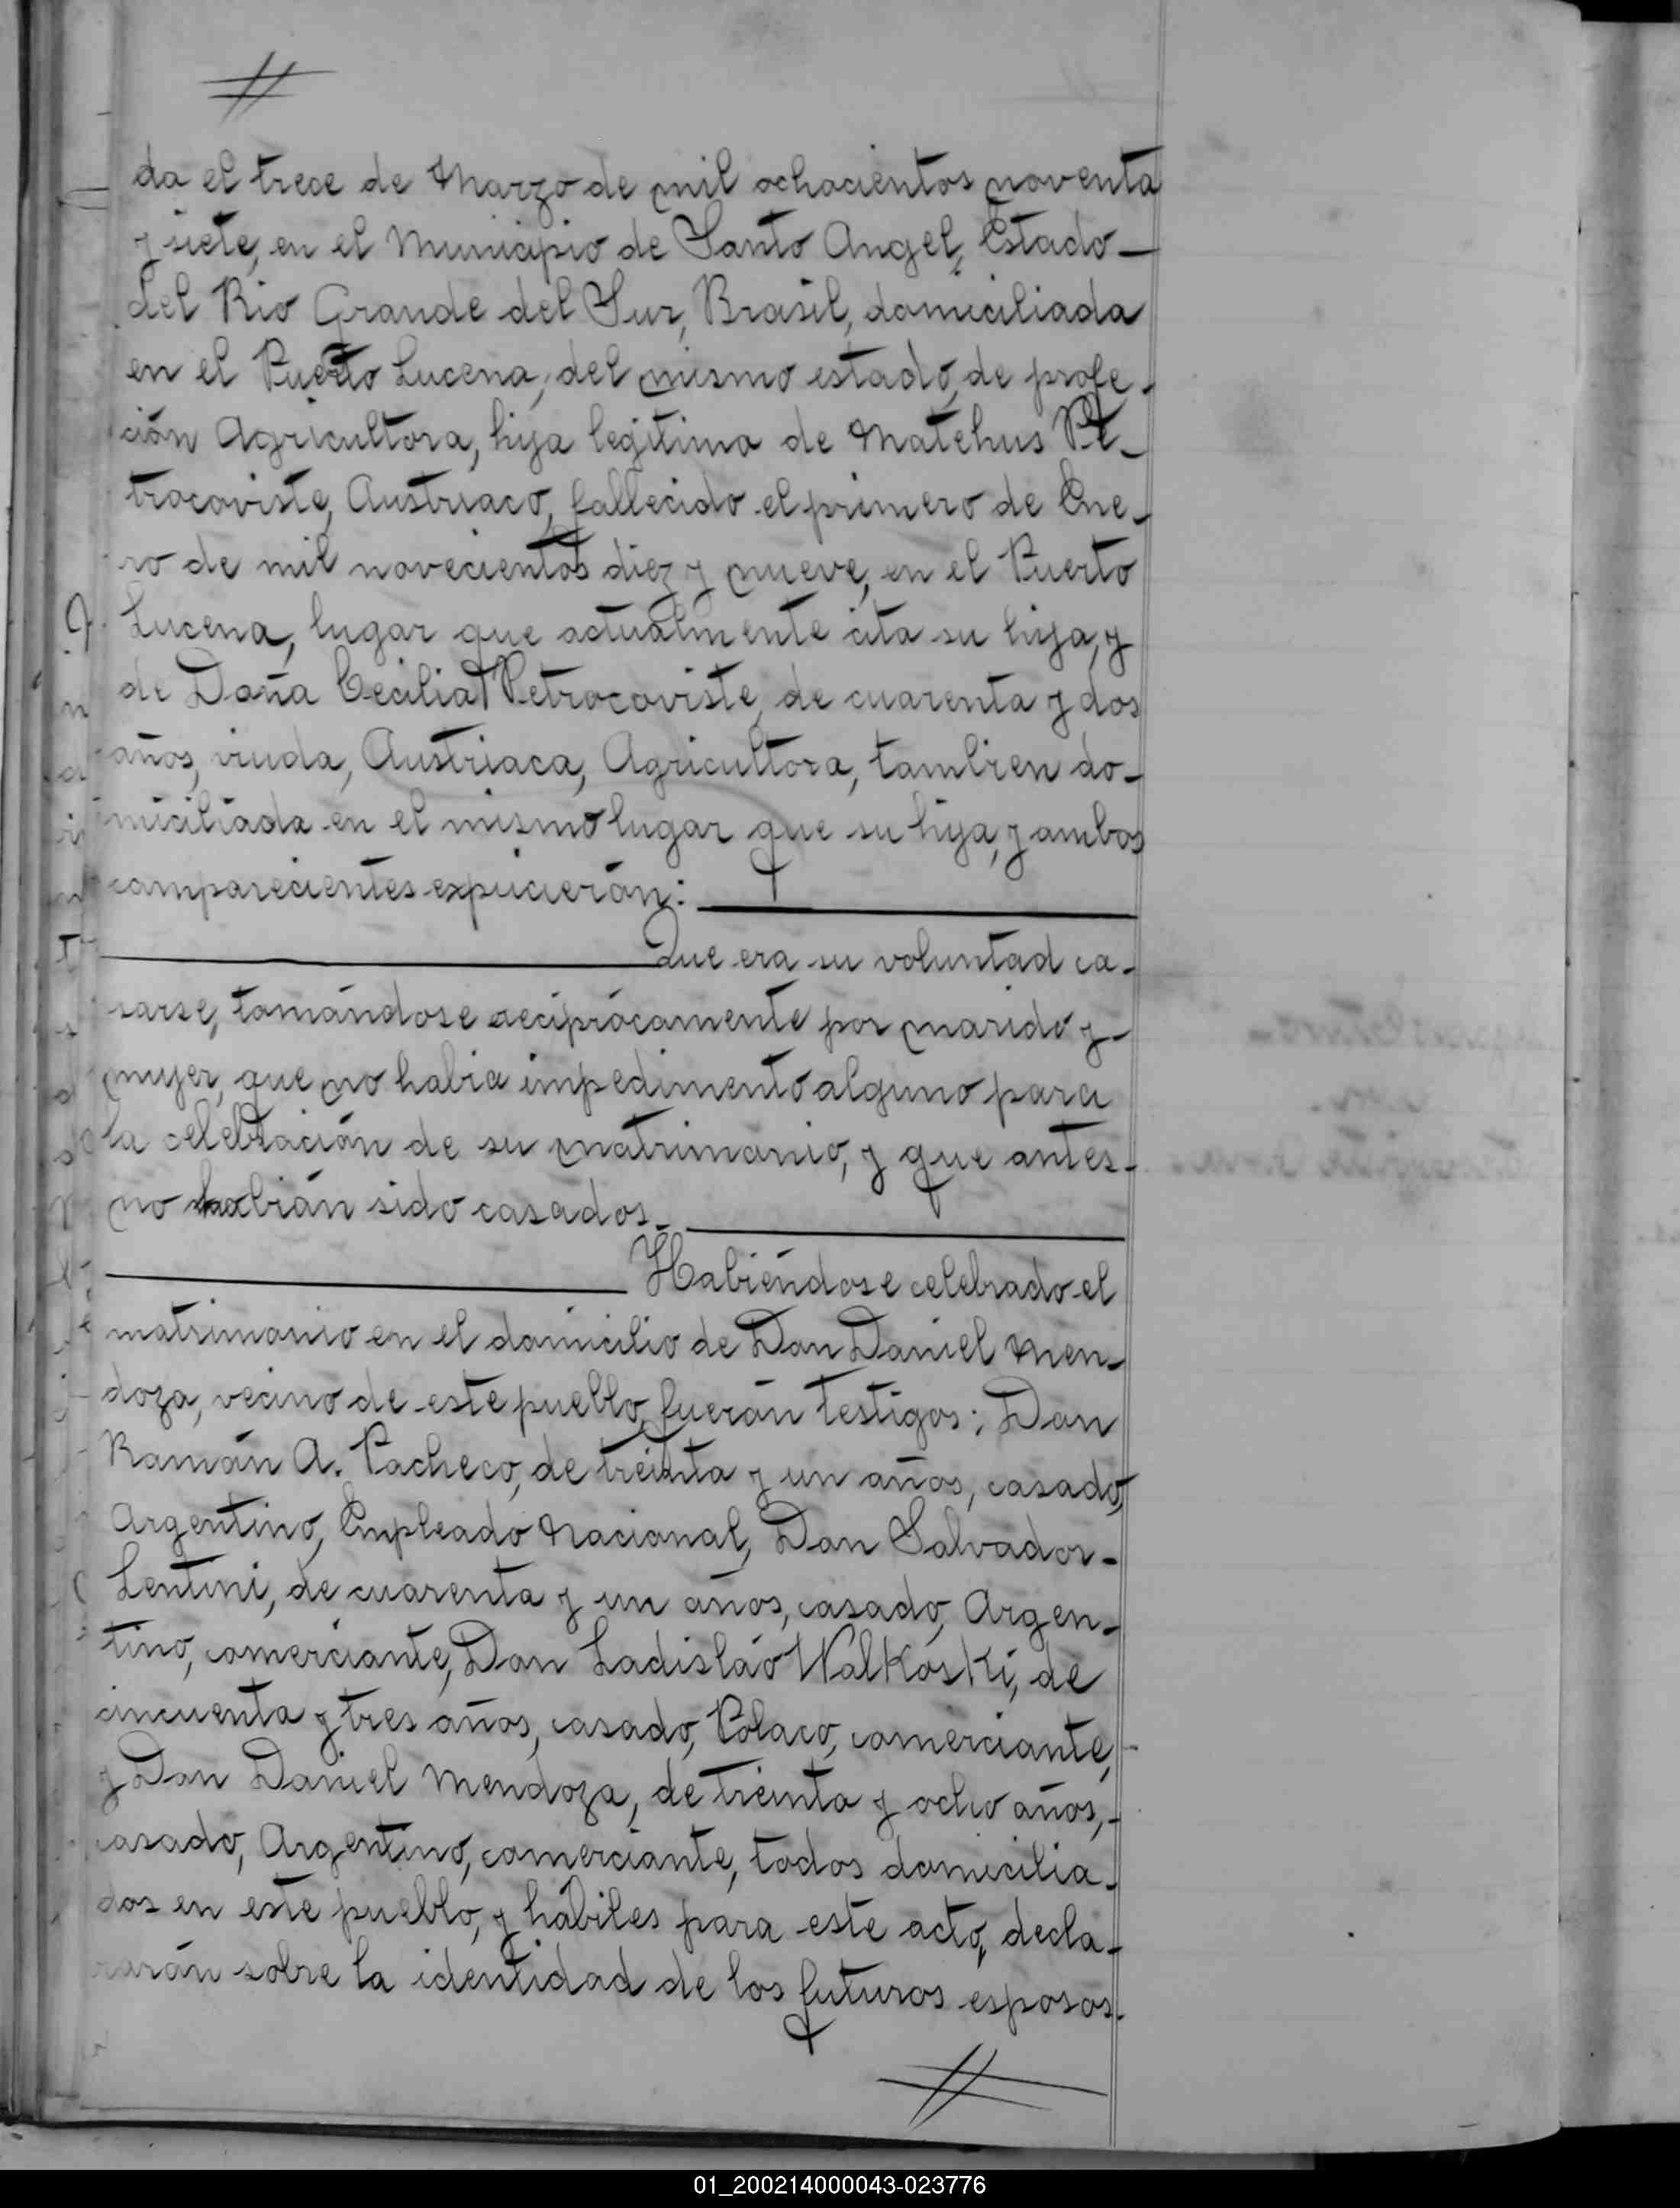 da el trece de Marzo de mil ochocientos noventa
y siete, en el Municipio de Santo Angel, Estado—
del Rio Grande del Sur, Brasil, domiciliada
en el Puerto Lucena, del mismo estado, de profe-
ción Agricultora, hija legitima de Matehus Pe-
trocoviste, Austriaco, fallecido el primero de Ene-
ro de mil novecientos diez y nueve, en el Puerto
Lucena, lugar que actualmente cita su hija, y
de Doña Cecilia Petrocoviste, de cuarenta y dos
años, viuda, Austriaca, Agricultora, tambien do-
miciliada en el mismo lugar que su hija, y ambos
comparecientes expucierón:
Que era su voluntad ca-
sarse, tomándose reciprócamente por marido y-
mujer, que no habia impedimento alguno para
la celebración de su matrimonio, y que antes-
no habián sido casados.-
Habiéndose celebrado el
matrimonio en el domicilio de Don Daniel Men-
doza, vecino de este pueblo, fuerón testigos: Don
Ramón A. Pacheco, de treinta y un años, casado,
Argentino, Empleado Nacional, Don Salvador-
Lentini, de cuarenta y un años, casado, Argen-
tino, comerciante, Don Ladisláo Walkoski, de
cincuenta y tres años, casado, Polaco, comerciante,-
y Don Daniel Mendoza, de treinta y ocho años,-
casado, Argentino, comerciante, todos domicilia-
dos en este pueblo, y hábiles para este acto, decla-
rarón sobre la identidad de los futuros esposos.
01_200214000043-023776